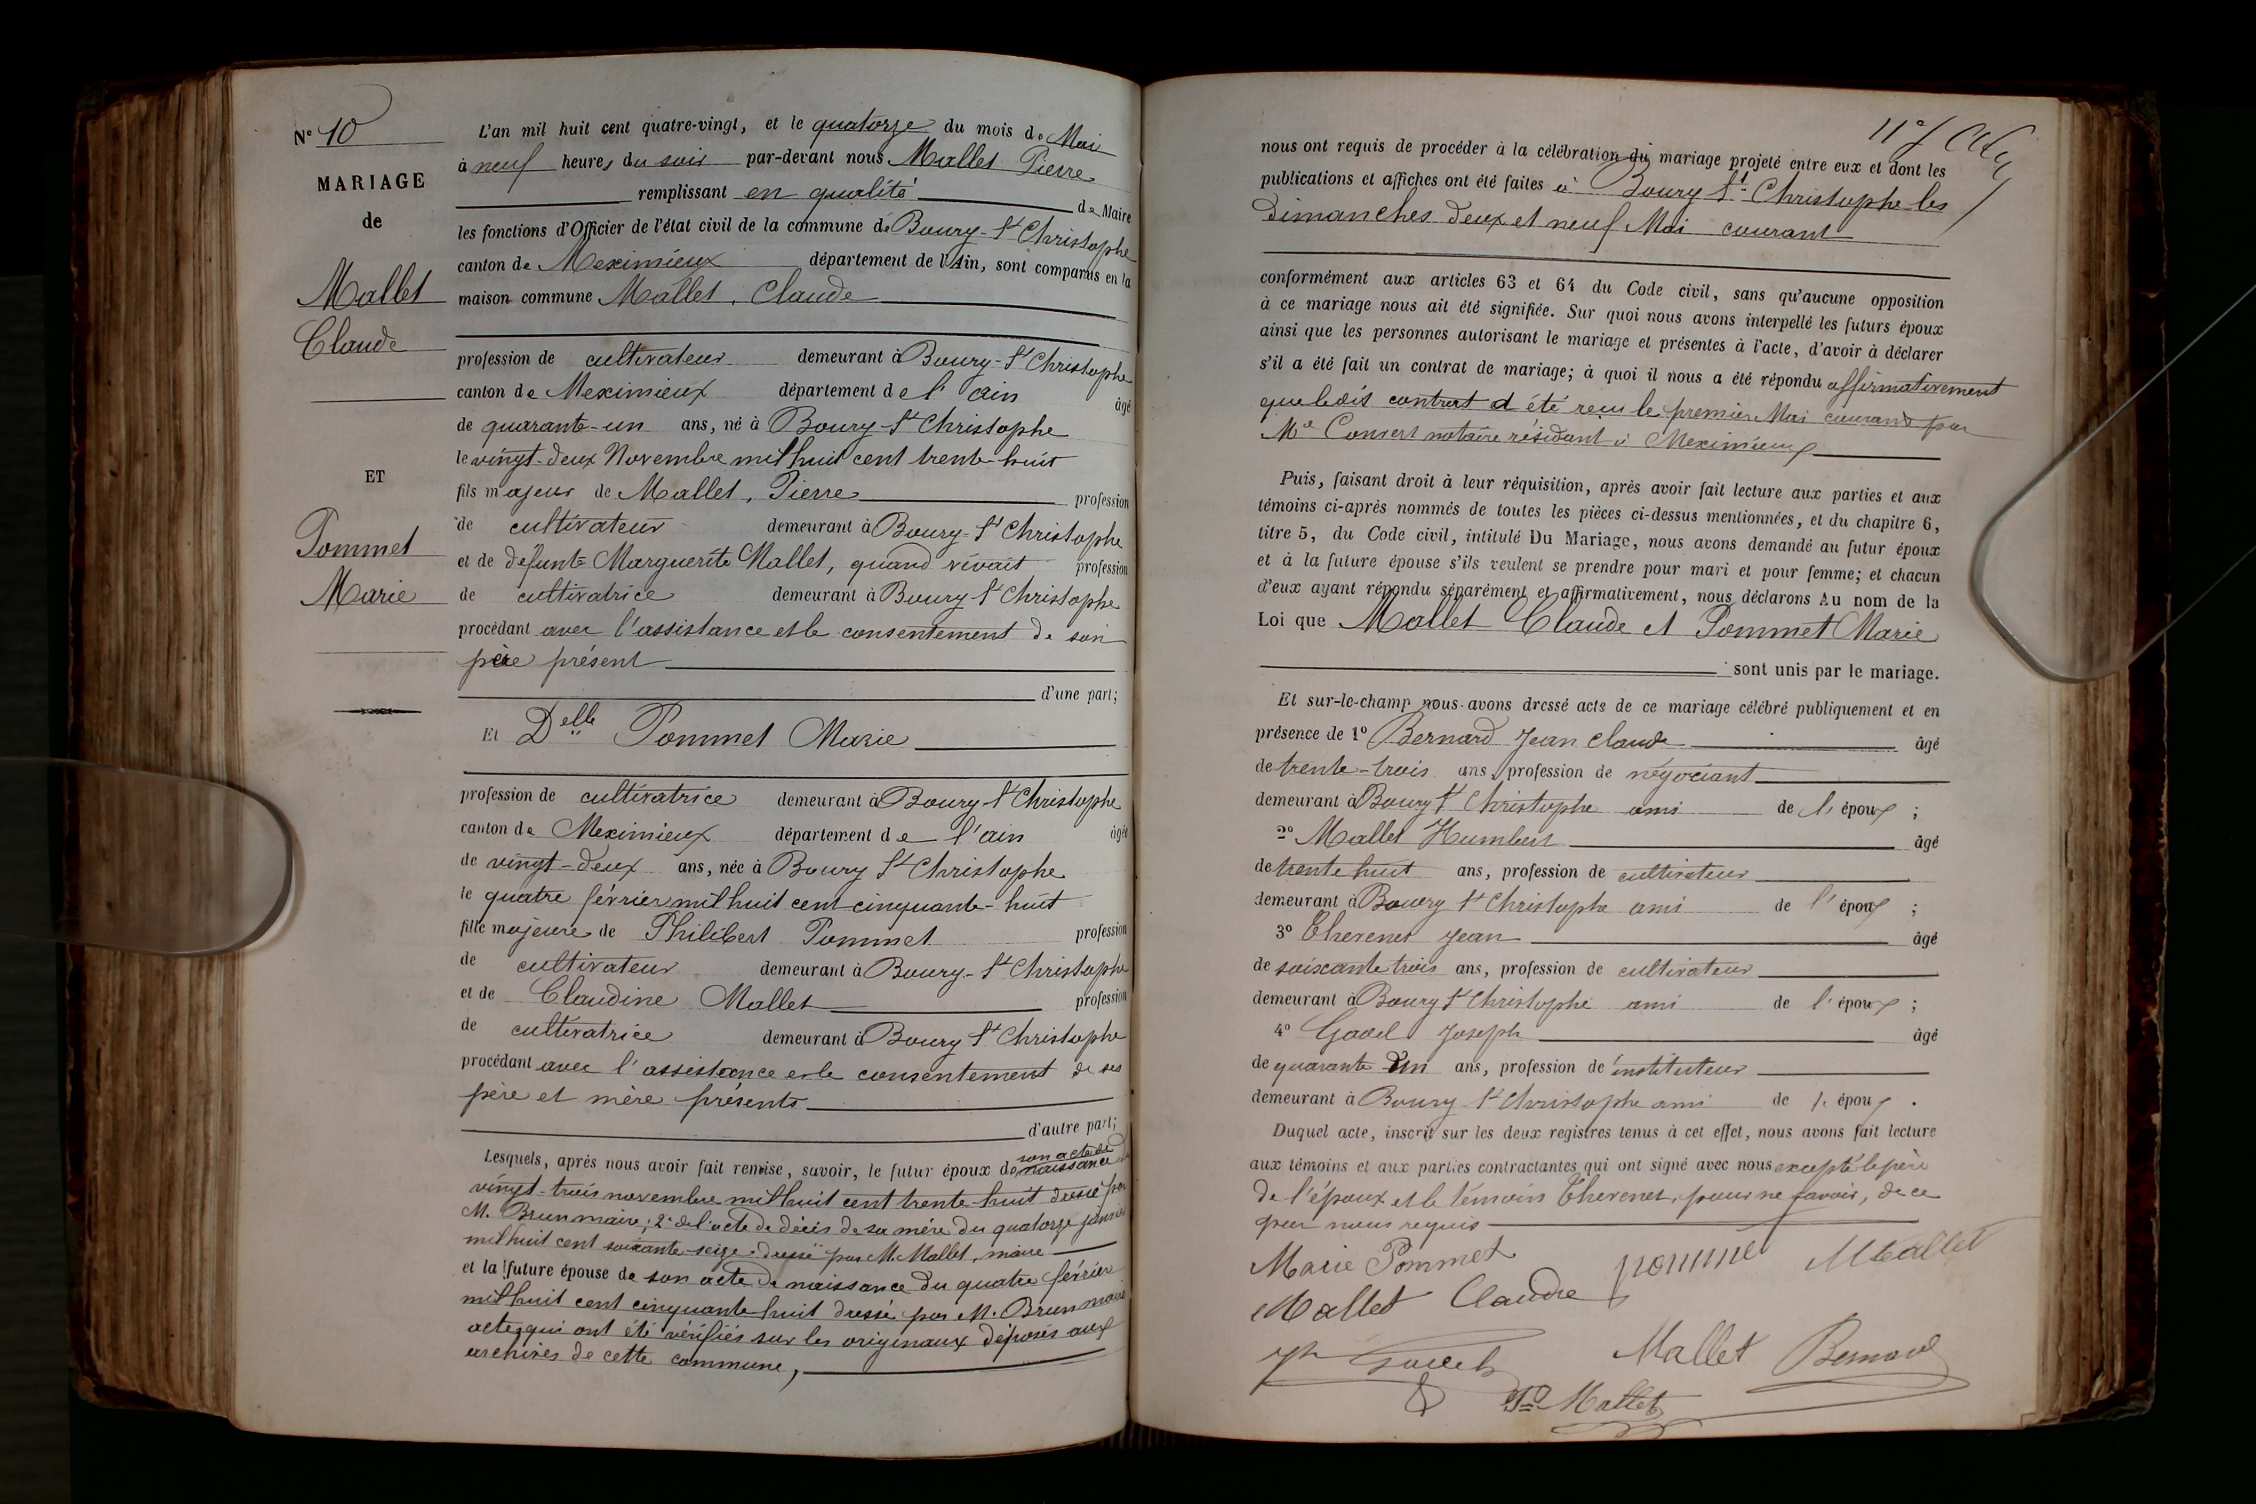 N° 10
MARIAGE
de
Mallet
Claude
ET
Pommet
Marie
L'an mil huit cent quatre-vingt, et le quatorze du mois de Mai
à neuf heures du soir par-devant nous Mallet Pierre
remplissant en qualité de Maire
les fonctions d'Officier de l'état civil de la commune de Boury-St Christophe
canton de Meximieux département de l'Ain, sont comparus en la
maison commune Mallet, Claude
profession de cultivateur demeurant à Boury-St Christophe
canton de Meximieux département de l'ain âgé
de quarante-un ans, né à Boury-St Christophe
le vingt-deux Novembre mil huit cent trente-huit
fils majeur de Mallet, Pierre profession
de cultivateur demeurant à Boury-St Christophe
et de défunte Marguerite Mallet, quand vivait profession
de cultivatrice demeurant à Boury St Christophe
procédant avec l'assistance et le consentement de son
père présent
d'une part;
Et Delle Pommet Marie
profession de cultivatrice demeurant à Boury St Christophe
canton de Meximieux département de l'ain âgée
de vingt-deux ans, née à Boury St Christophe
le quatre février mil huit cent cinquante-huit
fille majeure de Philibert Pommet profession
de cultivateur demeurant à Boury-St Christophe
et de Claudine Mallet profession
de cultivatrice demeurant à Boury St Christophe
procédant avec l'assistance et le consentement de ses
père et mère présents
d'autre part;
Lesquels, après nous avoir fait remise, savoir, le futur époux de son acte de naissance du
vingt-trois novembre mil huit cent trente-huit dressé par
M. Brun maire; 2° de l'acte de décès de sa mère du quatorze janvier
mil huit cent soixante-seize dressé par M. Mallet, maire
et la future épouse de son acte de naissance du quatre février
mil huit cent cinquante-huit dressé par M. Brun maire
actes qui ont été vérifiés sur les originaux déposés aux
archives de cette commune,
11e f
nous ont requis de procéder à la célébration du mariage projeté entre eux et dont les
publications et affiches ont été faites à Boury St Christophe les
Dimanches deux et neuf Mai courant
conformément aux articles 63 et 64 du Code civil, sans qu'aucune opposition
à ce mariage nous ait été signifiée. Sur quoi nous avons interpellé les futurs époux
ainsi que les personnes autorisant le mariage et présentes à l'acte, d'avoir à déclarer
s'il a été fait un contrat de mariage; à quoi il nous a été répondu affirmativement
que ledit contrat a été reçu le premier Mai courant par
Me Convert notaire résidant à Meximieux
Puis, faisant droit à leur réquisition, après avoir fait lecture aux parties et aux
témoins ci-après nommés de toutes les pièces ci-dessus mentionnées, et du chapitre 6,
titre 5, du Code civil, intitulé Du Mariage, nous avons demandé au futur époux
et à la future épouse s'ils veulent se prendre pour mari et pour femme; et chacun
d'eux ayant répondu séparément et affirmativement, nous déclarons Au nom de la
Loi que Mallet Claude et Pommet Marie
sont unis par le mariage.
Et sur-le-champ nous avons dressé acte de ce mariage célébré publiquement et en
présence de 1° Bernard Jean Claude âgé
de trente-trois ans, profession de négociant
demeurant à Boury St Christophe ami de l'époux;
2° Mallet Humbert âgé
de trente huit ans, profession de cultivateur
demeurant à Boury St Christophe ami de l'époux;
3° Thevenet Jean âgé
de soixante trois ans, profession de cultivateur
demeurant à Boury St Christophe ami de l'époux;
4° Joseph âgé
de quarante un ans, profession de instituteur
demeurant à Boury St Christophe ami de l'époux.
Duquel acte, inscrit sur les deux registres tenus à cet effet, nous avons fait lecture
aux témoins et aux parties contractantes qui ont signé avec nous excepté le père
de l'époux et le témoin Thevenet, pour ne savoir, de ce
par nous requis
Marie Pommet pommet Mallet
Mallet Claude
Mallet Bernard
Mallet